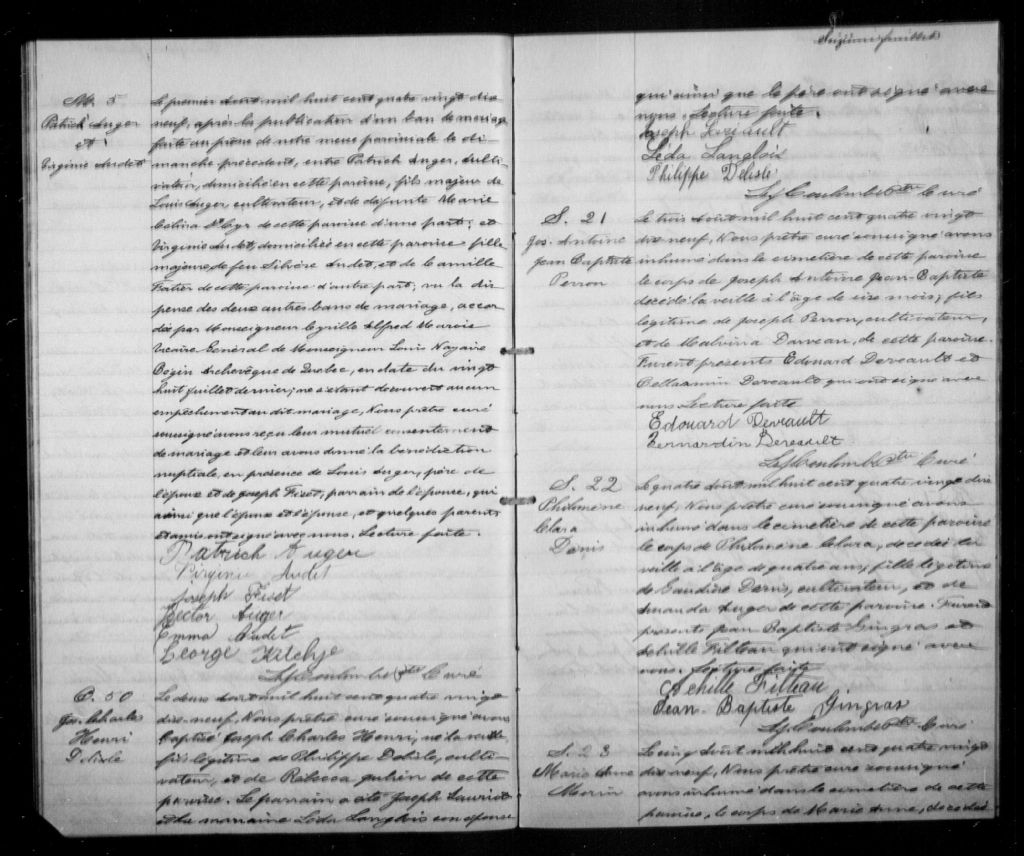 Seizième feuillet
M. 5
Patrick Auger
et
Virginie Audet
Le premier Août mil huit cent quatre vingt dix
neuf, après la publication d'un ban de mariage
faite au prône de notre messe paroissiale le di-
manche précédent, entre Patrick Auger, culti-
vateur, domicilié en cette paroisse, fils majeur de
Louis Auger, cultivateur, et de défunte Marie
Celina St Cyr de cette paroisse d'une part; et
Virginie Audet, domiciliée en cette paroisse fille
majeure, de feu Silvère Audet, et de Camille
de cette paroisse d'autre part; vu la dis
pense des deux autres bans de mariage, accor
dée par Monseigneur Cyrille Alfred Marois
Vicaire Général de Monseigneur Louis Nazaire
Bégin Archevêque de Quebec, en date du vingt
huit juillet dernier; ne s'étant découvert aucun
empêchement au dit mariage, Nous prêtre curé
soussigné avons reçu leur mutuel consentement
de mariage et leur avons donné la bénédiction
nuptiale en présence de Louis Auger, père de
l'époux et de Joseph Fiset, parrain de l'épouse, qui
ainsi que l'époux et l'épouse, et quelques parents
et amis ont signé avec nous. Lecture faite.
Patrick Auger
Virginie Audet
Joseph Fiset
Hector Auger
Emma Audet
George
Coulombe Ptre Curé
B. 50
Jos. Charles
Henri
Delisle
Le deux Août mil huit cent quatre vingt
dix-neuf, Nous prêtre curé soussigné avons
baptisé Joseph Charles Henri, né la veille
fils légitime de Philippe Delisle, culti-
vateur, et de Rebecca Julien de cette
paroisse. Le parrain a été Joseph Lauriot
et la marraine Léda Langlois son épouse
qui ainsi que le père ont signé avec
nous. Lecture faite.
Joseph
Léda Langlois
Philippe Delisle
Coulombe Ptre Curé
S. 21
Jos. Antoine
Jean Baptiste
Perron
Le trois Août mil huit cent quatre vingt
dix neuf, Nous prêtre curé soussigné avons
inhumé dans le cimetière de cette paroisse
le corps de Joseph Antoine Jean-Baptiste
décédé la veille à l'âge de six mois; fils
légitime de Joseph Perron, cultivateur,
et de Malvina Darveau, de cette paroisse.
Furent présents Edouard Deveault et
Deveault qui ont signé avec
nous. Lecture faite
Edouard Deveault
Bernardin Deveault
Coulombe Ptre Curé
S. 22
Philomène
Clara
Denis
Le quatre Août mil huit cent quatre vingt dix
neuf, Nous prêtre curé soussigné avons
inhumé dans le cimetière de cette paroisse
le corps de Philomène Clara, décédée la
veille à l'âge de quatre ans; fille légitime
de Gaudiose Denis, cultivateur, et de
Amanda Auger de cette paroisse. Furent
présents Jean Baptiste Gingras et
Achille Filteau qui ont signé avec
nous. Lecture faite
Achille Filteau
Jean-Baptiste Gingras
Coulombe Ptre Curé
S. 23
Marie Anne
Morin
Le cinq Août mil huit cent quatre vingt
dix neuf, Nous prêtre curé soussigné
avons inhumé dans le cimetière de cette
paroisse, le corps de Marie Anne, décédée